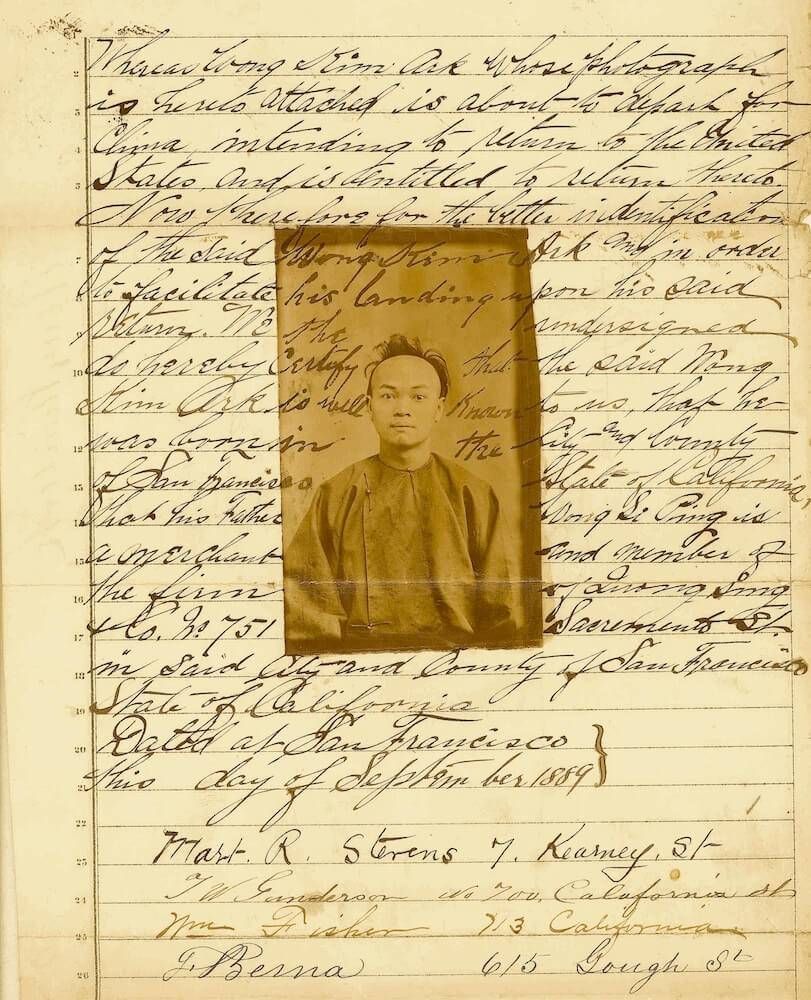 Whereas Wong Kim Ark whose photograph
is hereto attached is about to depart for
China, intending to return to the United
States, and is dentitled to return thereto.
Now therefore for the better indentification
of the said Wong Kim Ark and in order
to facilitate his landing upon his said
return. We the undersigned
do hereby Certify that the said Wong
Kim Ark is well Known to us, that he
was born in the City and County
of San Francisco State of California,
that his Father Wong Si Ping is
a merchant and member of
the firm of Quong Sing
& Co. No 751 Sacremento St.
in said City and County of San Francisco
State of California
Dated at San Francisco
this day of September 1889
Mart. R. Stevens 7. Kearney. St
T W Gunderson No 700. Calafornia st
Wm Fisher 713 California
F. Berna 615 Gough St
2
3
4
5
7
8
9
10
12
13
14
15
16
17
18
19
20
21
22
23
24
25
26